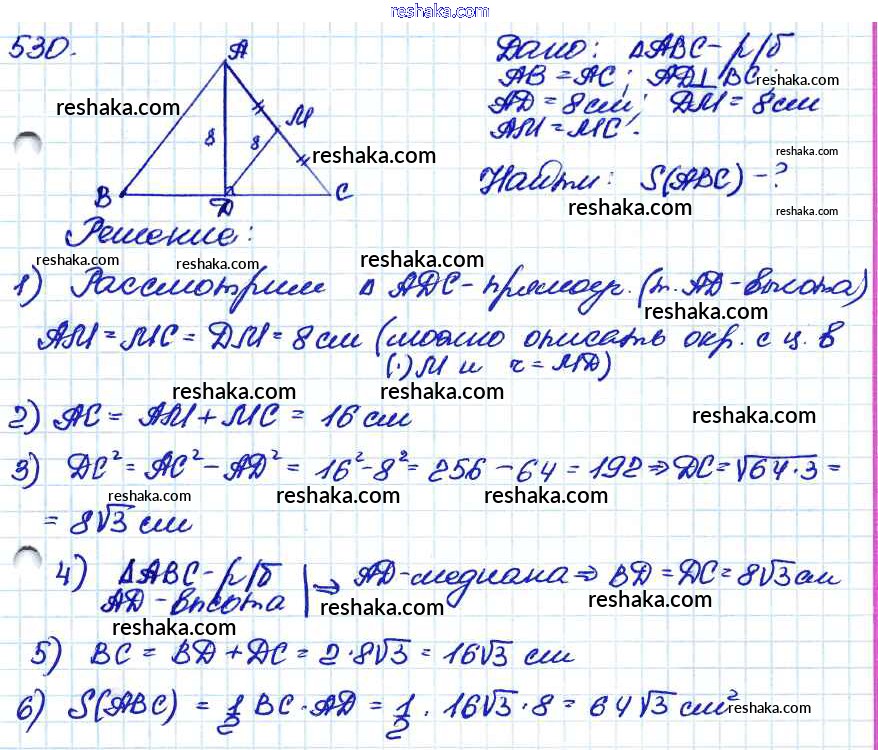 reshaka.com
530.
A
Дано: ΔABC - р/б
AB = AC; AD⊥BC; reshaka.com
reshaka.com
AD = 8 см; DM = 8 см
8 8 M
AM = MC.
reshaka.com reshaka.com
B D C
Найти: S(ABC) - ?
reshaka.com reshaka.com
Решение:
reshaka.com reshaka.com reshaka.com
1) Рассмотрим Δ ADC - прямоуг. (т. AD - высота)
reshaka.com
AM = MC = DM = 8 см (можно описать окр. с ц. в
(·) M и r = MD)
reshaka.com reshaka.com
2) AC = AM + MC = 16 см reshaka.com
3) DC² = AC² - AD² = 16² - 8² = 256 - 64 = 192 ⇒ DC = √64·3 =
reshaka.com reshaka.com reshaka.com
= 8√3 см
4) ΔABC - р/б | ⇒ AD - медиана ⇒ BD = DC = 8√3 см
AD - высота reshaka.com reshaka.com
reshaka.com
5) BC = BD + DC = 2·8√3 = 16√3 см
6) S(ABC) = 1/2 BC·AD = 1/2 · 16√3·8 = 64√3 см² reshaka.com